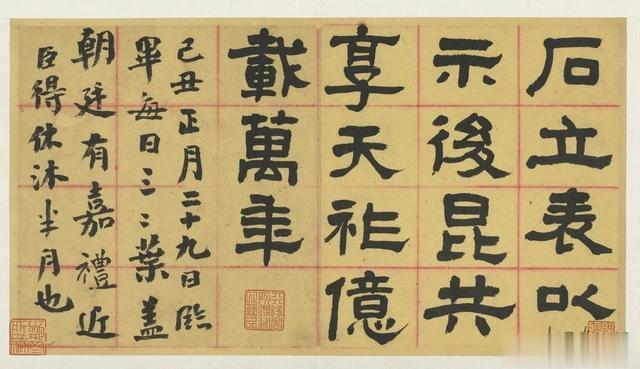 石立表以
示後昆共
享天祚億
載萬年
己丑正月二十九日臨
畢每日三二葉蓋
朝廷有嘉禮近
臣得休沐半月也